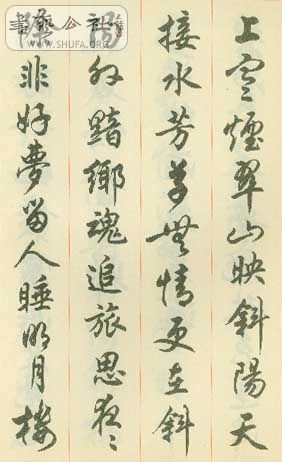 上寒煙翠山映斜陽天
接水芳草無情更在斜
陽外黯鄉魂追旅思夜〻
除非好夢留人睡明月樓
書藝公社
WWW.SHUFA.ORG